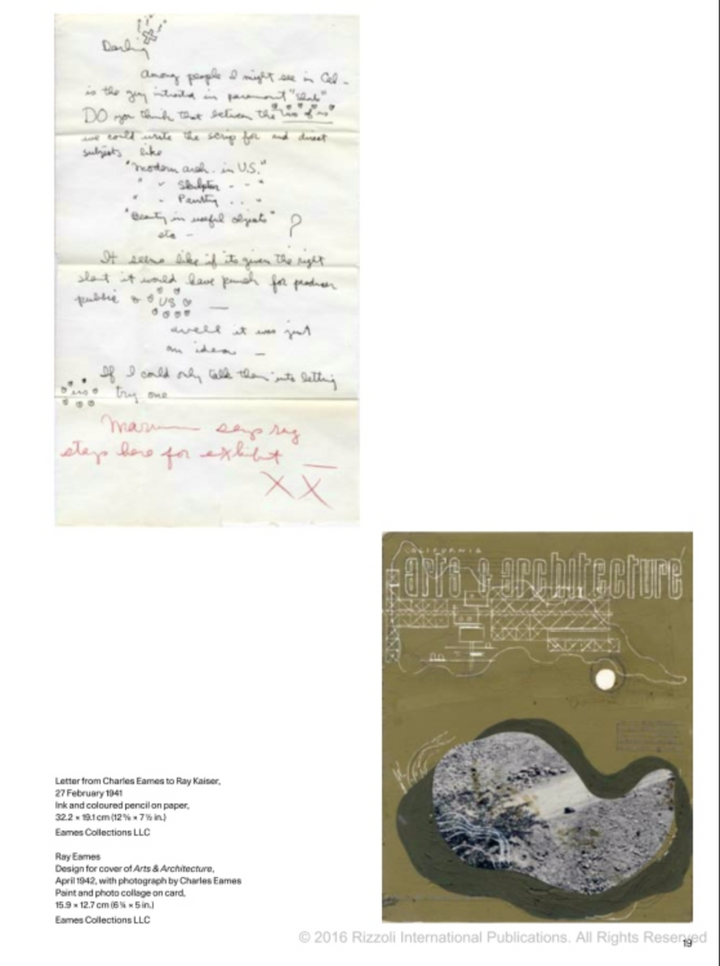 Darling
Among people I might see in Cal -
is the guy in paramount "shorts"
DO you think that between the "two of us"
we could write the scrip for and direct
subjects like
"Modern arch. in U.S."
" " Sculpter - - "
" " Painting . . "
"Beauty in useful objects" ?
etc -
It seems like if its given the right
slant it would have punch for producer
public & US —
well it was just
an idea —
If I could only talk them into letting
us try one
says rug
stays here for exhibit
XX
CALIFORNIA
arts & architecture
Letter from Charles Eames to Ray Kaiser,
27 February 1941
Ink and coloured pencil on paper,
32.2 × 19.1 cm (12 ⅝ × 7 ½ in.)
Eames Collections LLC
Ray Eames
Design for cover of Arts & Architecture,
April 1942, with photograph by Charles Eames
Paint and photo collage on card,
15.9 × 12.7 cm (6 ¼ × 5 in.)
Eames Collections LLC
© 2016 Rizzoli International Publications. All Rights Reserved
19